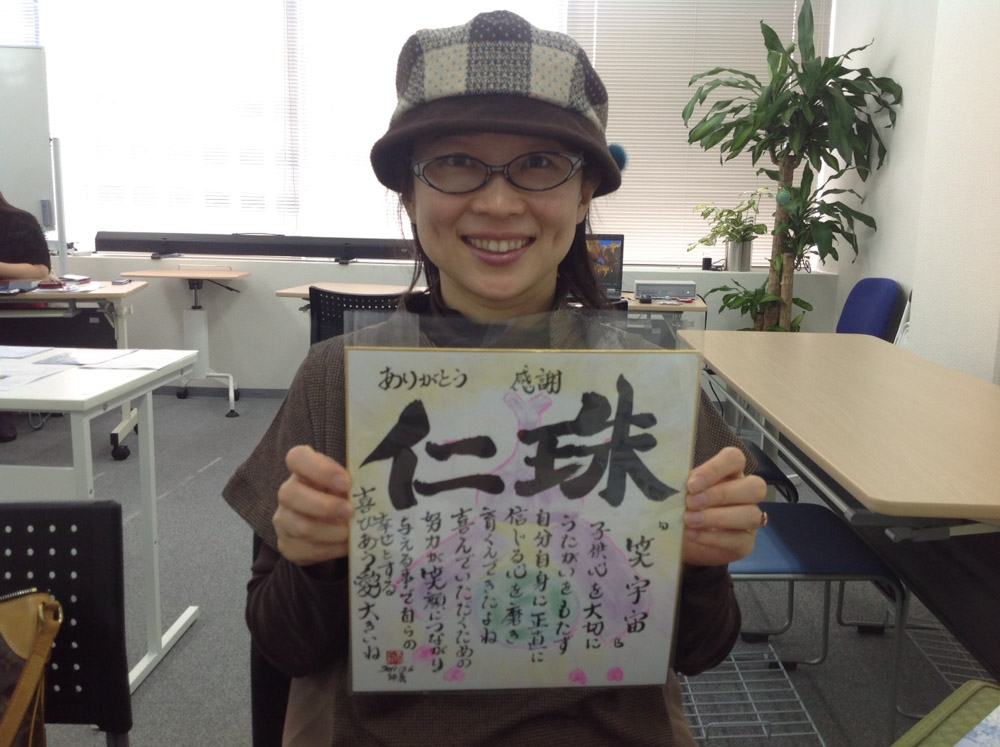 ありがとう 感謝
仁珠
〝笑宇宙〟
子供心を大切に
うたがいをもたず
自分自身に正直に
信じる心を磨き
育くんできたよね
喜んでいただくための
努力が笑顔につながり
与える事で自らの
幸せとする
喜びあう 大きいね